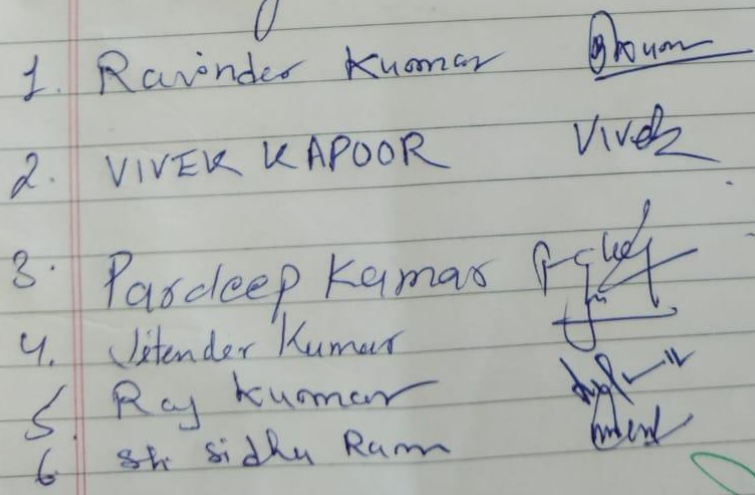 1. Ravinder Kumar
2. VIVEK KAPOOR Vivek
3. Pardeep Kumar
4. Jitender Kumar
5. Raj Kumar
6. Sh. Sidhu Ram